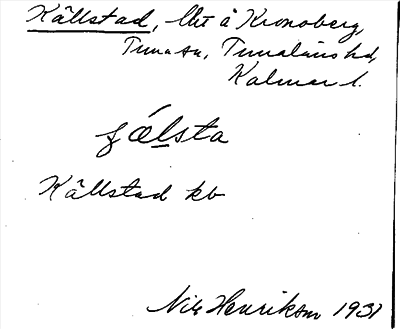 Källstad, lht å Kronoberg,
Tuna sn, Tunaläns hd,
Kalmar l.
fǽlsta
Källstad kb
Nils Henrikson 1931